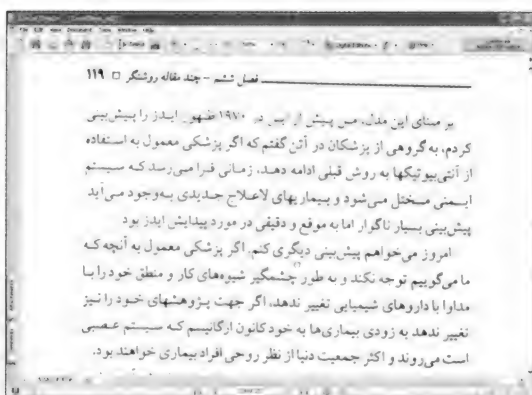 File Edit View Document Tools Window Help
فصل ششم – چند مقاله روشنگر □ ۱۱۹
بر مبنای این مدل، من پیش از این در ۱۹۷۰ ظهور ایدز را پیش‌بینی
کردم، به گروهی از پزشکان در آتن گفتم که اگر پزشکی معمول به استفاده
از آنتی‌بیوتیکها به روش قبلی ادامه دهد، زمانی فرا می‌رسد که سیستم
ایمنی مختل می‌شود و بیماریهای لاعلاج جدیدی به‌وجود می‌آید
پیش‌بینی بسیار ناگوار اما به موقع و دقیقی در مورد پیدایش ایدز بود
امروز می‌خواهم پیش‌بینی دیگری کنم. اگر پزشکی معمول به آنچه که
ما می‌گوییم توجه نکند و به طور چشمگیر شیوه‌های کار و منطق خود را با
مداوا با داروهای شیمیایی تغییر ندهد، اگر جهت پژوهشهای خود را نیز
تغییر ندهد به زودی بیماری‌ها به خود کانون ارگانیسم که سیستم عصبی
است می‌روند و اکثر جمعیت دنیا از نظر روحی افراد بیماری خواهند بود.